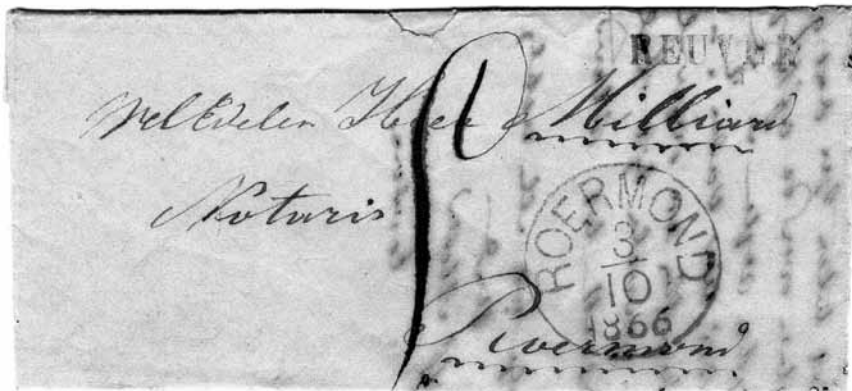 REUVER
WelEdelen Heer Milliard
Notaris
ROERMOND
3
10
1866
Roermond